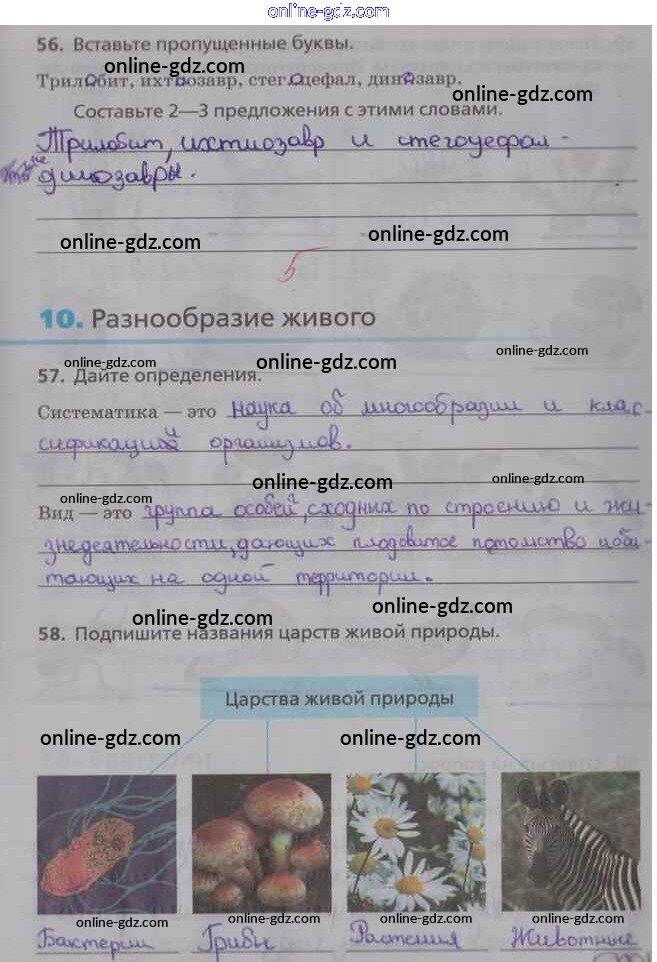 online-gdz.com
56. Вставьте пропущенные буквы.
Трилобит, ихтиозавр, стегоцефал, динозавр.
online-gdz.com
Составьте 2—3 предложения с этими словами.
Трилобит, ихтиозавр и стегоцефал -
динозавры.
online-gdz.com online-gdz.com
5
10. Разнообразие живого
online-gdz.com
online-gdz.com online-gdz.com
57. Дайте определения.
Систематика — это наука об многообразии и клас-
сификацией организмов.
online-gdz.com
online-gdz.com online-gdz.com
Вид — это группа особей, сходних по строению и жи-
знедеятельности, дающих плодовитое потомство и оби-
тающих на одной территории.
online-gdz.com online-gdz.com
58. Подпишите названия царств живой природы.
Царства живой природы
online-gdz.com online-gdz.com
online-gdz.com online-gdz.com online-gdz.com online-gdz.com
Бактерии Грибы Растения Животные